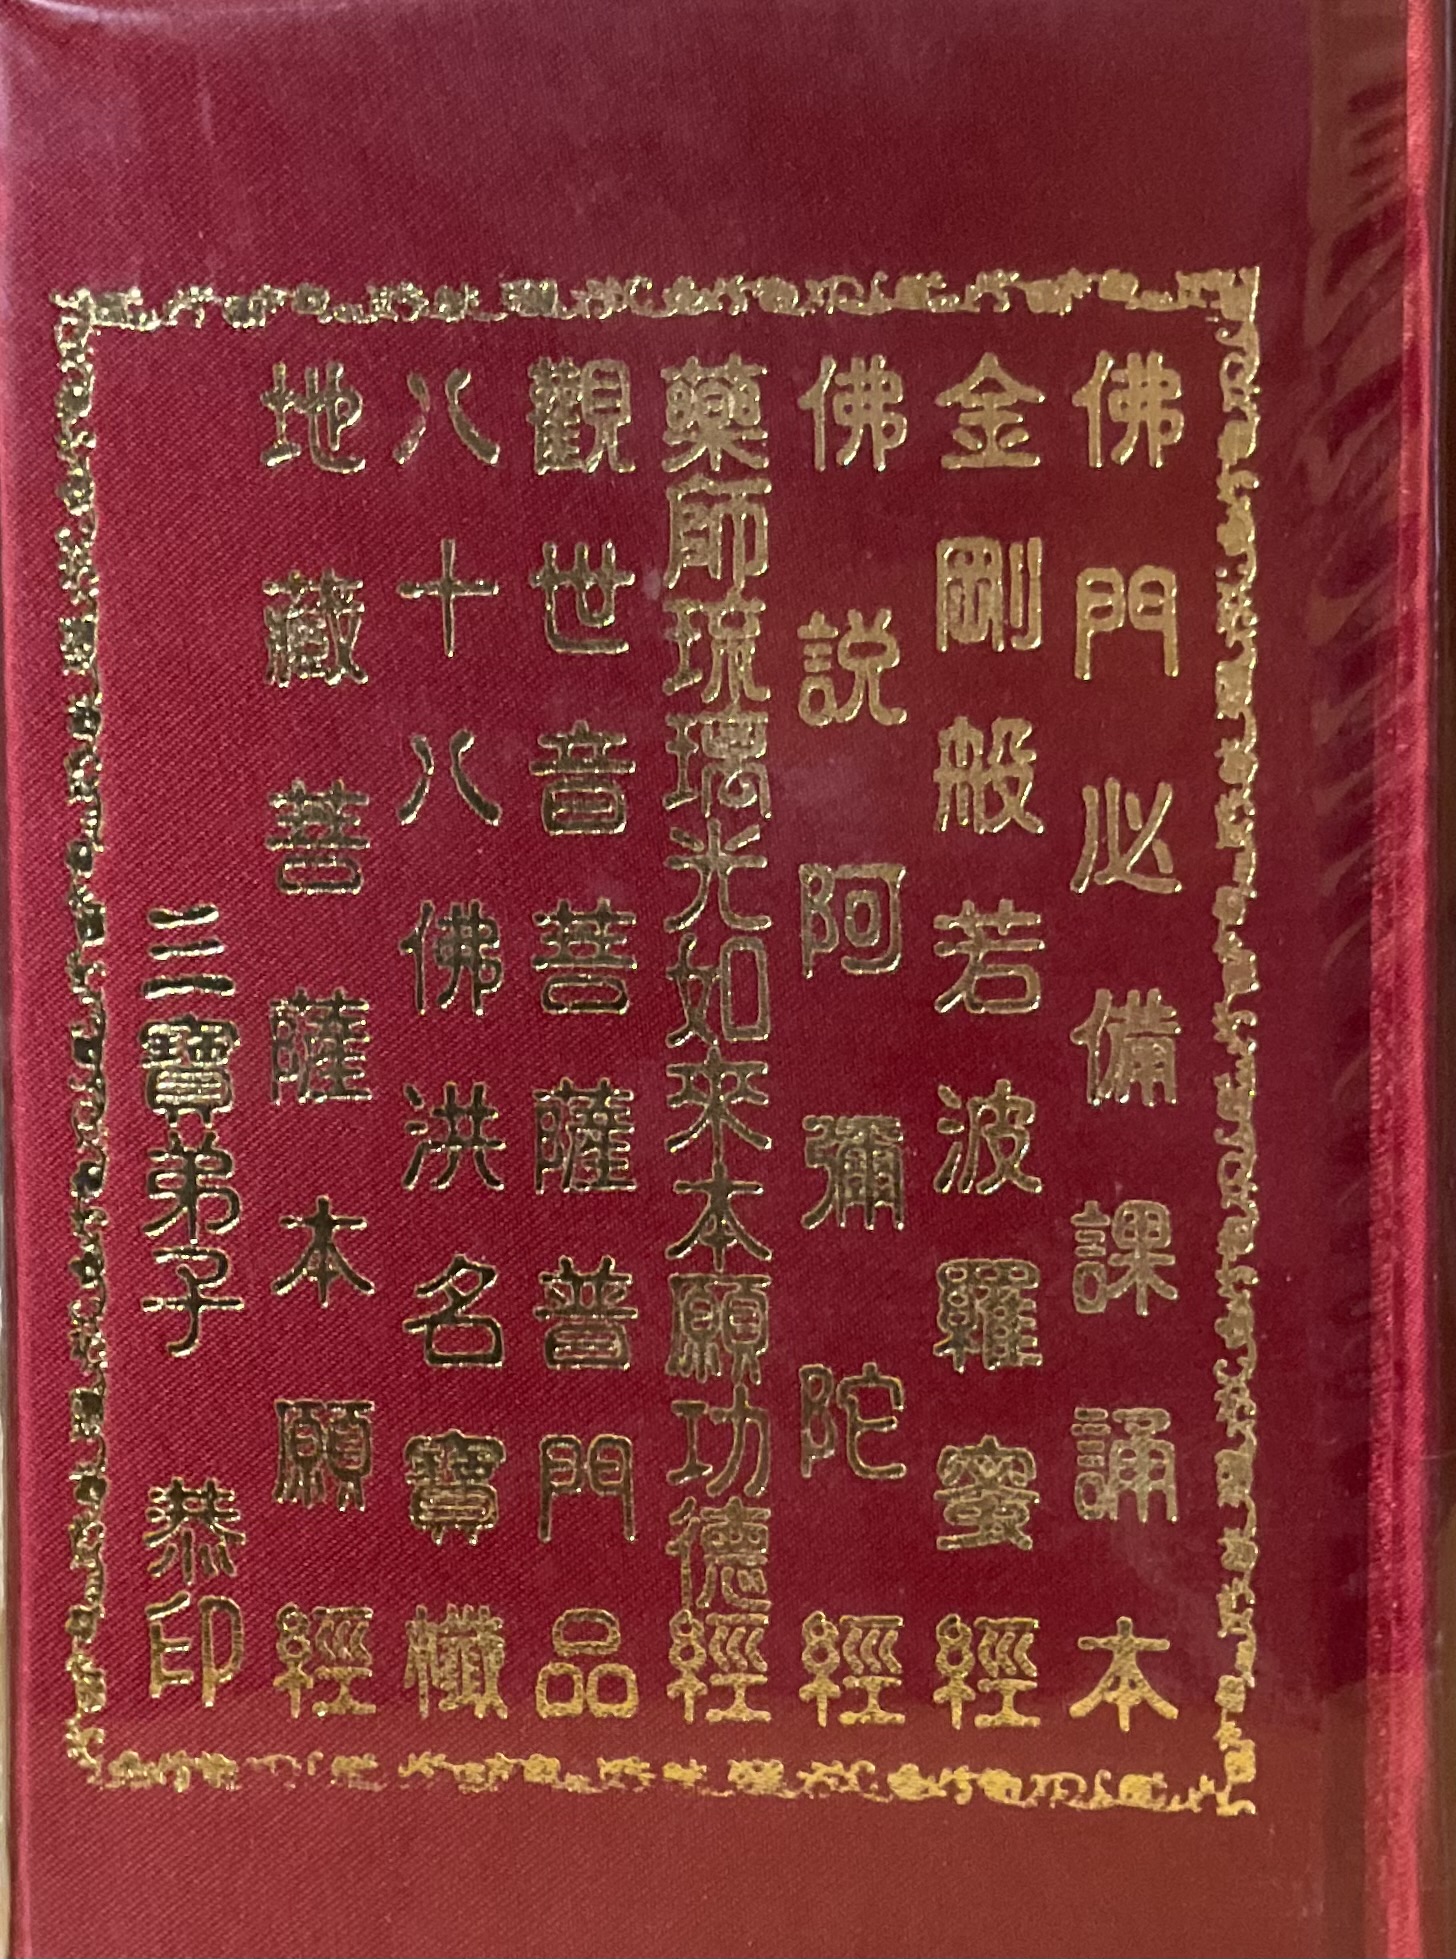 佛門必備課誦本
金剛般若波羅蜜經
佛說阿彌陀經
藥師琉璃光如來本願功德經
觀世音菩薩普門品
八十八佛洪名寶懺
地藏菩薩本願經
三寶弟子 恭印